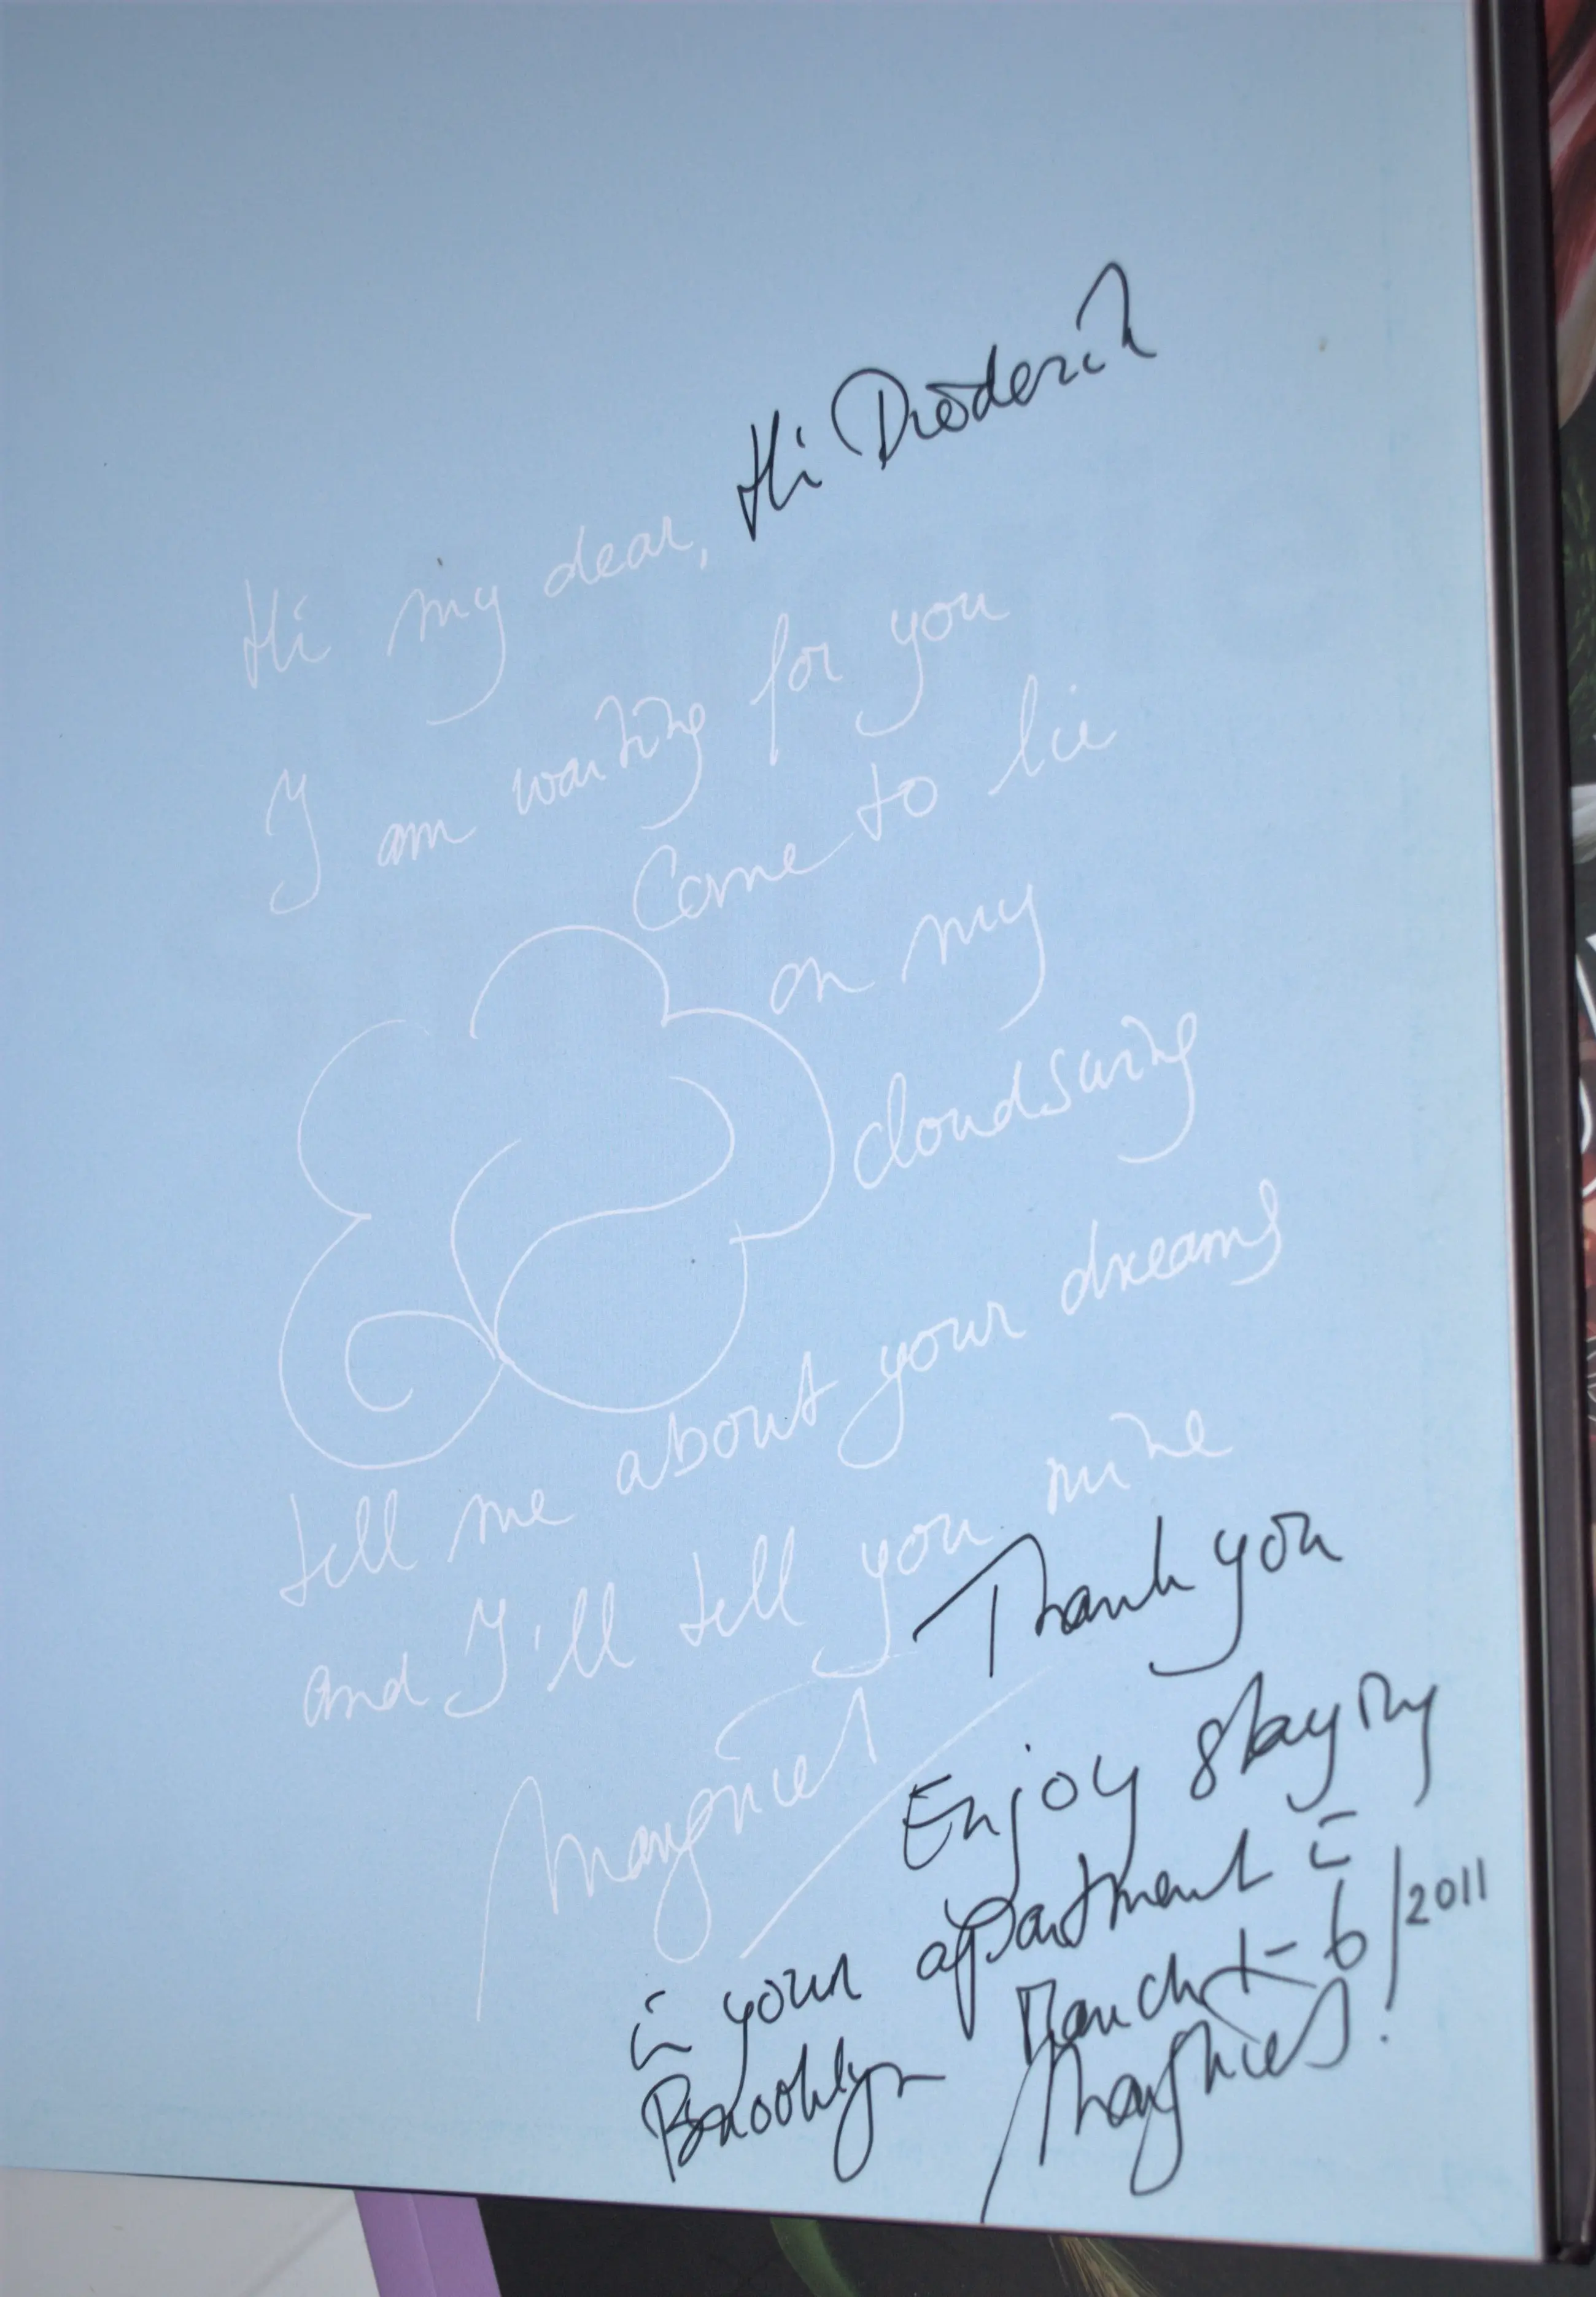 Hi Diederik
Hi my dear,
I am waiting for you
Come to lie
on my
cloudswing
tell me about your dreams
and I'll tell you mine
Margriet
Thank you
Enjoy staying
in your apartment in
Brooklyn March 6/2011
Margriet!